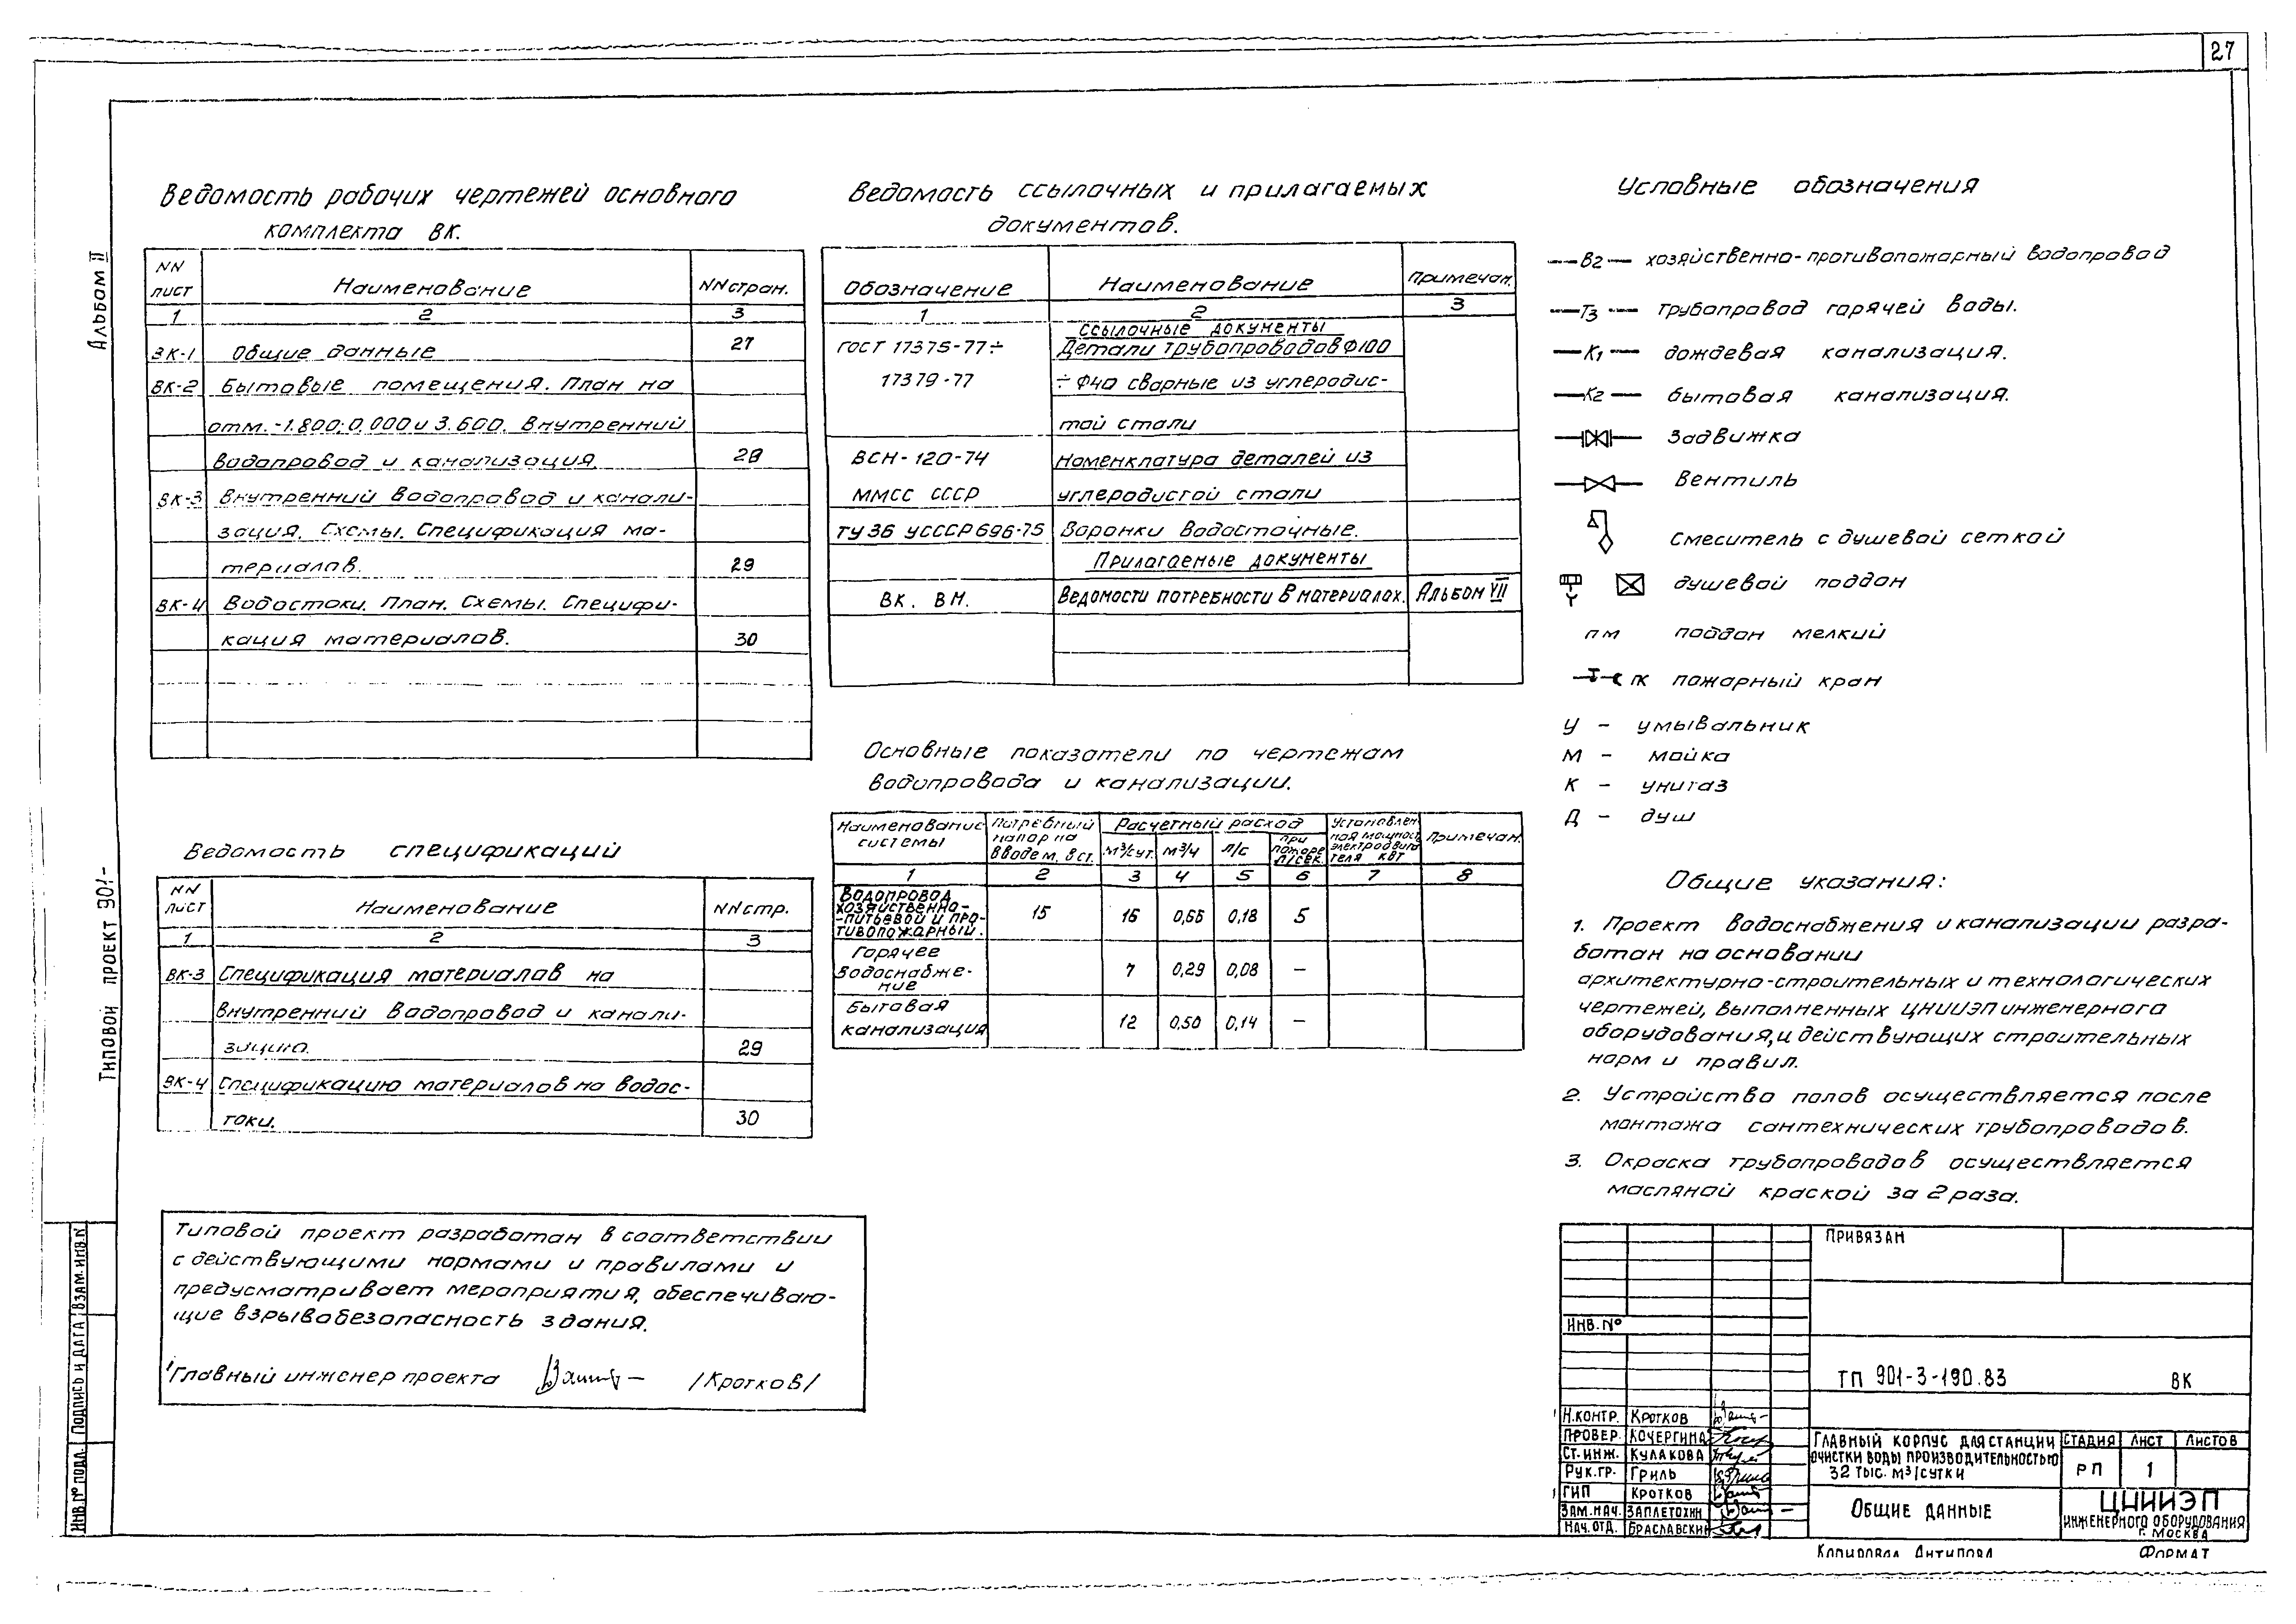 27
Альбом II
Типовой проект 901-
Ведомость рабочих чертежей основного
комплекта ВК.
NN лист | Наименование | NN стран.
1 | 2 | 3
ВК-1 | Общие данные | 27
ВК-2 | Бытовые помещения. План на
отм. -1.800; 0.000 и 3.600. Внутренний
водопровод и канализация. | 28
ВК-3 | Внутренний водопровод и канали-
зация. Схемы. Спецификация ма-
териалов. | 29
ВК-4 | Водостоки. План. Схемы. Специфи-
кация материалов. | 30
Ведомость спецификаций
NN лист | Наименование | NN стр.
1 | 2 | 3
ВК-3 | Спецификация материалов на
внутренний водопровод и канали-
зацию. | 29
ВК-4 | Спецификацию материалов на водос-
токи. | 30
Типовой проект разработан в соответствии
с действующими нормами и правилами и
предусматривает мероприятия, обеспечиваю-
щие взрывобезопасность здания.
Главный инженер проекта /Кротков/
Ведомость ссылочных и прилагаемых
документов.
Обозначение | Наименование | Примечан.
1 | 2 | 3
Ссылочные документы
ГОСТ 17375-77÷ | Детали трубопроводов Ф100
17379-77 | ÷ Ф40 сварные из углеродис-
той стали
ВСН-120-74 | Номенклатура деталей из
ММСС СССР | углеродистой стали
ТУ 36 УСССР 696-75 | Воронки водосточные.
Прилагаемые документы
ВК. ВМ. | Ведомости потребности в материалах. | Альбом VII
Основные показатели по чертежам
водопровода и канализации.
Наименование системы | Потребный напор на вводе м. в ст. | Расчетный расход | м³/сут. | м³/ч | л/с | при пожаре л/сек. | Установлен-ная мощность электродвига-теля квт | Примечан.
1 | 2 | 3 | 4 | 5 | 6 | 7 | 8
Водопровод
хозяйственно-
-питьевой и про-
тивопожарный. | 15 | 16 | 0,66 | 0,18 | 5
Горячее
водоснабже-
ние | 7 | 0,29 | 0,08 | —
Бытовая
канализация | 12 | 0,50 | 0,14 | —
Условные обозначения
В2 хозяйственно-противопожарный водопровод
Т3 трубопровод горячей воды.
К1 дождевая канализация.
К2 бытовая канализация.
Задвижка
Вентиль
Смеситель с душевой сеткой
душевой поддон
пм поддон мелкий
пк пожарный кран
У – умывальник
М – мойка
К – унитаз
Д – душ
Общие указания:
1. Проект водоснабжения и канализации разра-
ботан на основании
архитектурно-строительных и технологических
чертежей, выполненных ЦНИИЭП инженерного
оборудования, и действующих строительных
норм и правил.
2. Устройство полов осуществляется после
монтажа сантехнических трубопроводов.
3. Окраска трубопроводов осуществляется
масляной краской за 2 раза.
Привязан
Инв. №
ТП 901-3-190.83 ВК
Н.контр. Кротков
Провер. Кочергина
Ст.инж. Кулакова
Рук.гр. Гриль
ГИП Кротков
Зам.нач. Заплетохин
Нач.отд. Браславский
Главный корпус для станции
очистки воды производительностью
32 тыс. м³/сутки
Стадия | Лист | Листов
РП | 1
Общие данные
ЦНИИЭП
инженерного оборудования
г. Москва
Копировал Антипова
Формат
Инв.№ подл. | Подпись и дата | Взам. инв.№